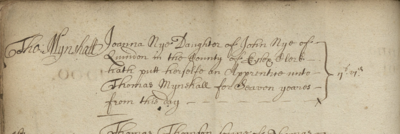 Tho: Mynshall Joanna Nye Daughter of John Nye of
in the County of Essex Clerk
hath putt herselfe an Apprentice unto
Thomas Mynshall for Seaven yeares
from this day
Thomas